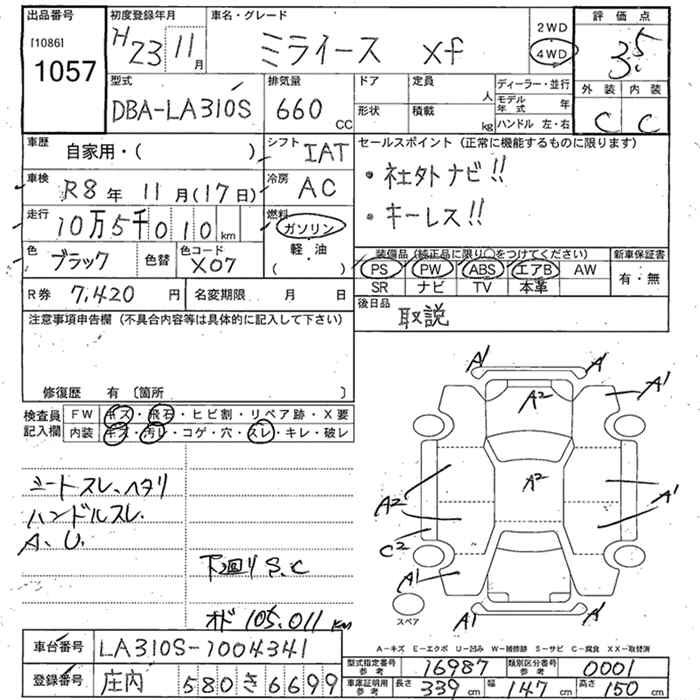 出品番号 初度登録年月 車名・グレード 評価点
[1086] H23 11月 ミライース xf 2WD 4WD 3.5
1057
型式 排気量 ドア 定員 人 ディーラー・並行 外装 内装
DBA-LA310S 660 CC 形状 積載 kg モデル年式 年 C C
ハンドル 左・右
車歴 自家用・( ) シフト IAT セールスポイント (正常に機能するものに限ります)
車検 R8年 11月(17日) 冷房 AC ・社外ナビ!!
走行 10万5千010km 燃料 ガソリン ・キーレス!!
軽・油
( )
色 ブラック 色替 色コード X07 装備品 (純正品に限り○をつけてください) 新車保証書
PS PW ABS エアB AW 有・無
SR ナビ TV 本革
R券 7,420円 名変期限 月 日 後日品
取説
注意事項申告欄 (不具合内容等は具体的に記入して下さい)
修復歴 有 〔箇所 〕
検査員記入欄 FW キズ・飛石・ヒビ割・リペア跡・X要
内装 キズ・汚レ・コゲ・穴・スレ・キレ・破レ
シートスレ、ヘタリ
ハンドルスレ
A、U.
下廻りS、C
オド 105,011km
A1 A1
A2 A1
A2
A2 A1
C2
A1
A1 A1
スペア
A-キズ E-エクボ U-凹み W-補修跡 S-サビ C-腐食 XX-取替済
車台番号 LA310S-1004341
登録番号 庄内 580 き 6699
型式指定番号 参考 16987 類別区分番号 参考 0001
車庫証明用 参考 長さ 339cm 幅 147cm 高さ 150cm